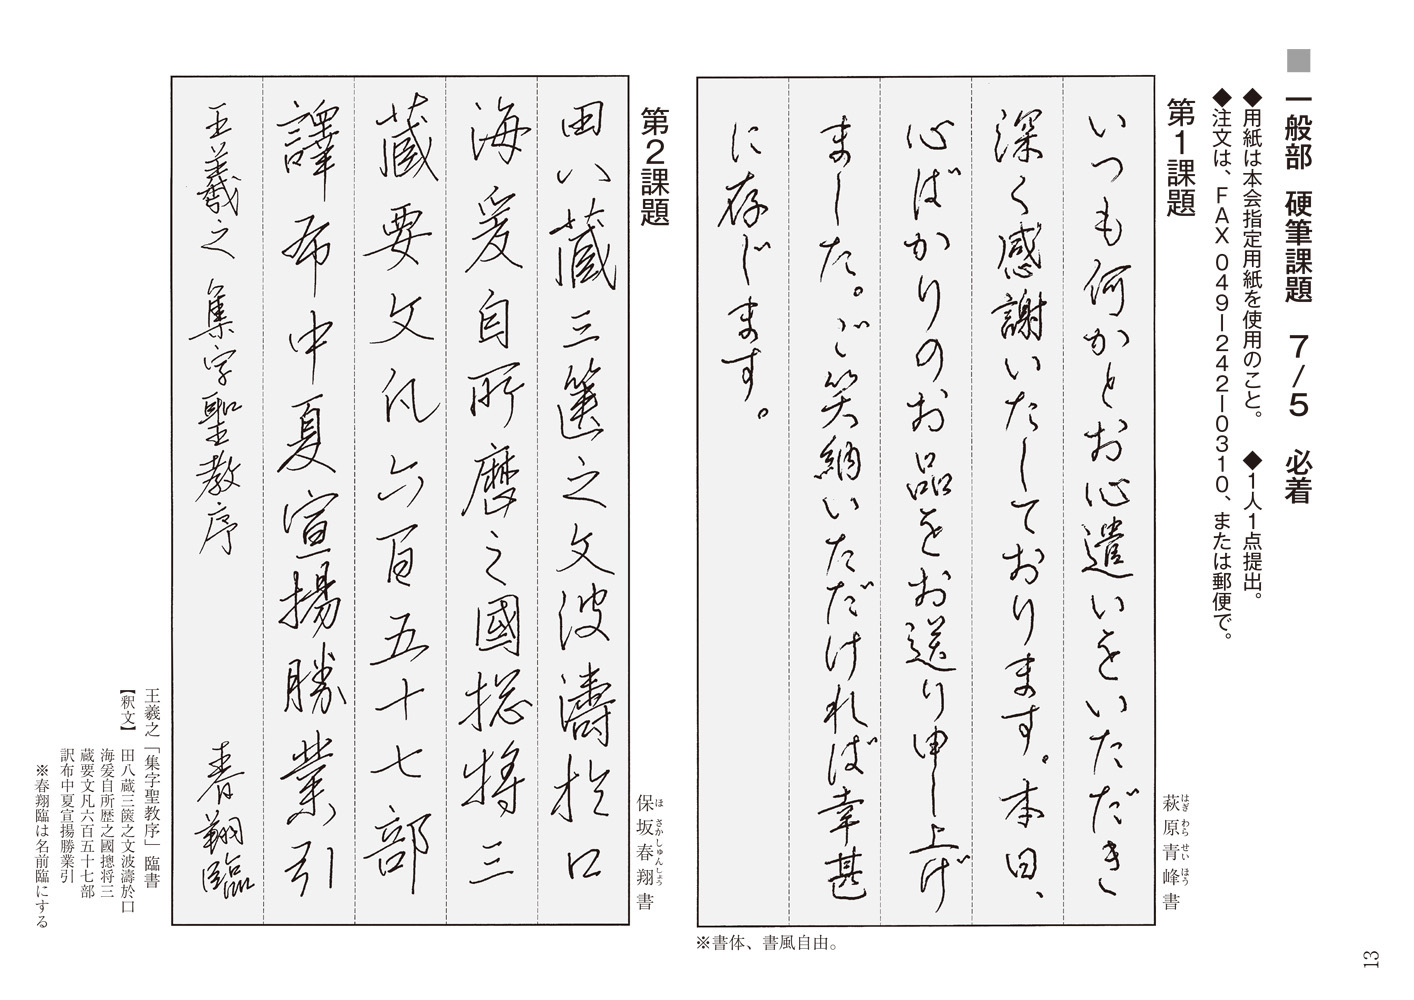 ■ 一般部 硬筆課題 7/5 必着
◆用紙は本会指定用紙を使用のこと。 ◆1人1点提出。
◆注文は、FAX 049ー242ー0310、または郵便で。
第1課題
萩原青峰書
はぎわらせいほう
いつも何かとお心遣いをいただき
深く感謝いたしております。本日、
心ばかりのお品をお送り申し上げ
ました。ご笑納いただければ幸甚
に存じます。
※書体、書風自由。
第2課題
保坂春翔書
ほさかしゅんしょう
田八藏三篋之文波濤於口
海爰自所歷之國摠将三
藏要文凡六百五十七部
譯布中夏宣揚勝業引
王羲之 集字聖教序 春翔臨
王羲之「集字聖教序」臨書
【釈文】 田八蔵三篋之文波濤於口
海爰自所歴之國摠将三
蔵要文凡六百五十七部
訳布中夏宣揚勝業引
※春翔臨は名前臨にする
13